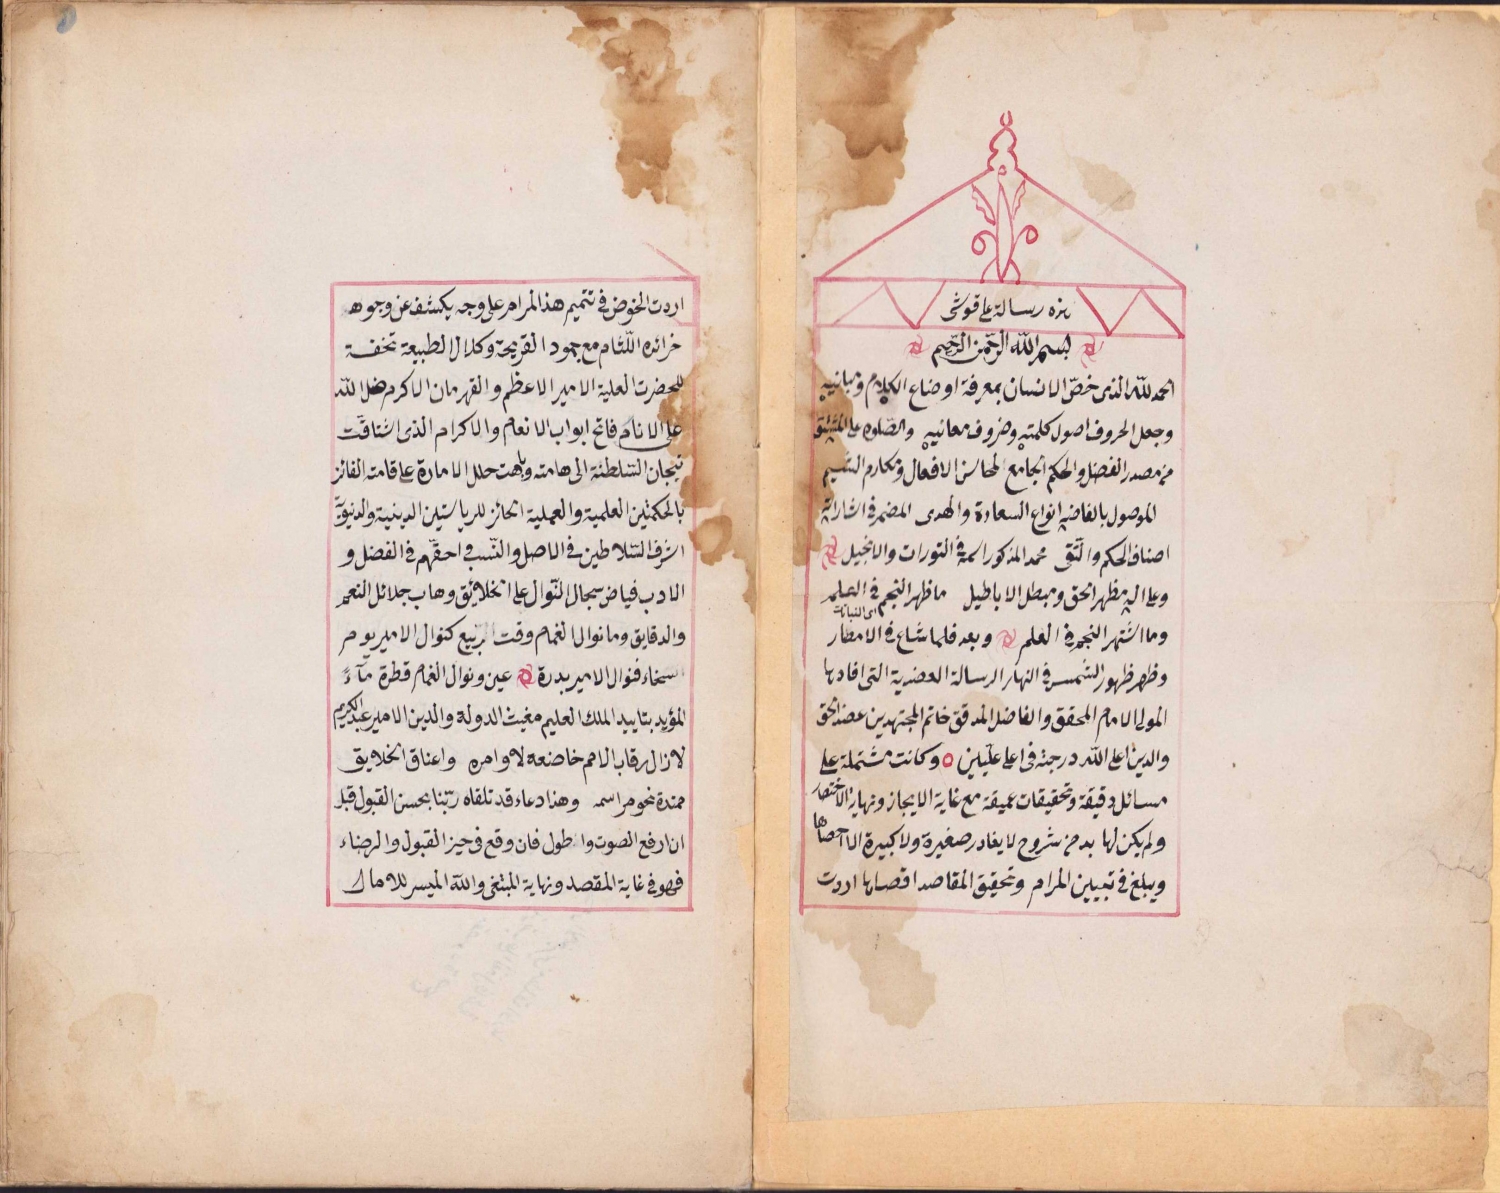 هذه رسالة على قوشى
بسم الله الرحمن الرحيم
الحمد لله الذى خص الانسان بمعرفة اوضاع الكلام ومبانيه
وجعل الحروف اصول كلمته وظروف معانيه والصلوة على المشتق
من مصدر الفضل والحكم الجامع لمحاسن الافعال ومكارم الشيم
الموصول بالفاضه انواع السعادة والهدى المضمر فى اشاراته
اصناف الحكم والتقى محمد المذكور اسمه فى التورات والانجيل
وعلى اله مظهر الحق ومبطل الاباطيل ما ظهر النجم فى العلم
اى النباتات
وما اشتهر النجم فى العلم وبعد فلما شاع فى الامطار
وظهر ظهور الشمس فى النهار الرسالة العضدية التى افادها
المولى الامام المحقق والفاضل المدقق خاتم المجتهدين عضد الحق
والدين اعلى الله درجته فى اعلى عليين وكانت مشتملة على
مسائل دقيقة وتحقيقات عميقة مع غاية الايجاز ونهاية الاختصار
ولم يكن لها بد من شروح لا يغادر صغيرة ولا كبيرة الا احصاها
ويبلغ فى تبيين المرام وتحقيق المقاصد اقصاها اردت
اردت الخوض فى تتميم هذا المرام على وجه يكشف عن وجوه
خرائده اللثام مع جمود القريحة وكلال الطبيعة تحفة
للحضرت العلية الامير الاعظم والقهرمان الاكرم ظل الله
على الانام فاتح ابواب الانعام والاكرام الذى اشتاقت
تيجان السلطنة الى هامته وباهت حلل الامارة على قامته الفائز
بالحكمتين العلمية والعملية الحائز للرياستين الدينية والدنيوية
اشرف السلاطين فى الاصل والنسب واحقهم فى الفضل و
الادب فياض سجال النوال على الخلائق وهاب جلائل النعم
والدقايق وما نوال الغمام وقت الربيع كنوال الامير يوم
السخاء فنوال الامير بدرة عين ونوال الغمام قطرة ماء
المؤيد بتاييد الملك العليم مغيث الدولة والدين الامير عبد الكريم
لا زال رقاب الامم خاضعه لاوامره واعناق الخلايق
ممتدة نحو مراسمه وهذا دعاء قد تلقاه ربنا بحسن القبول قبل
ان ارفع الصوت وا طول فان وقع فى حيز القبول والرضاء
فهو فى غاية المقصد ونهاية المبتغى والله الميسر للامال